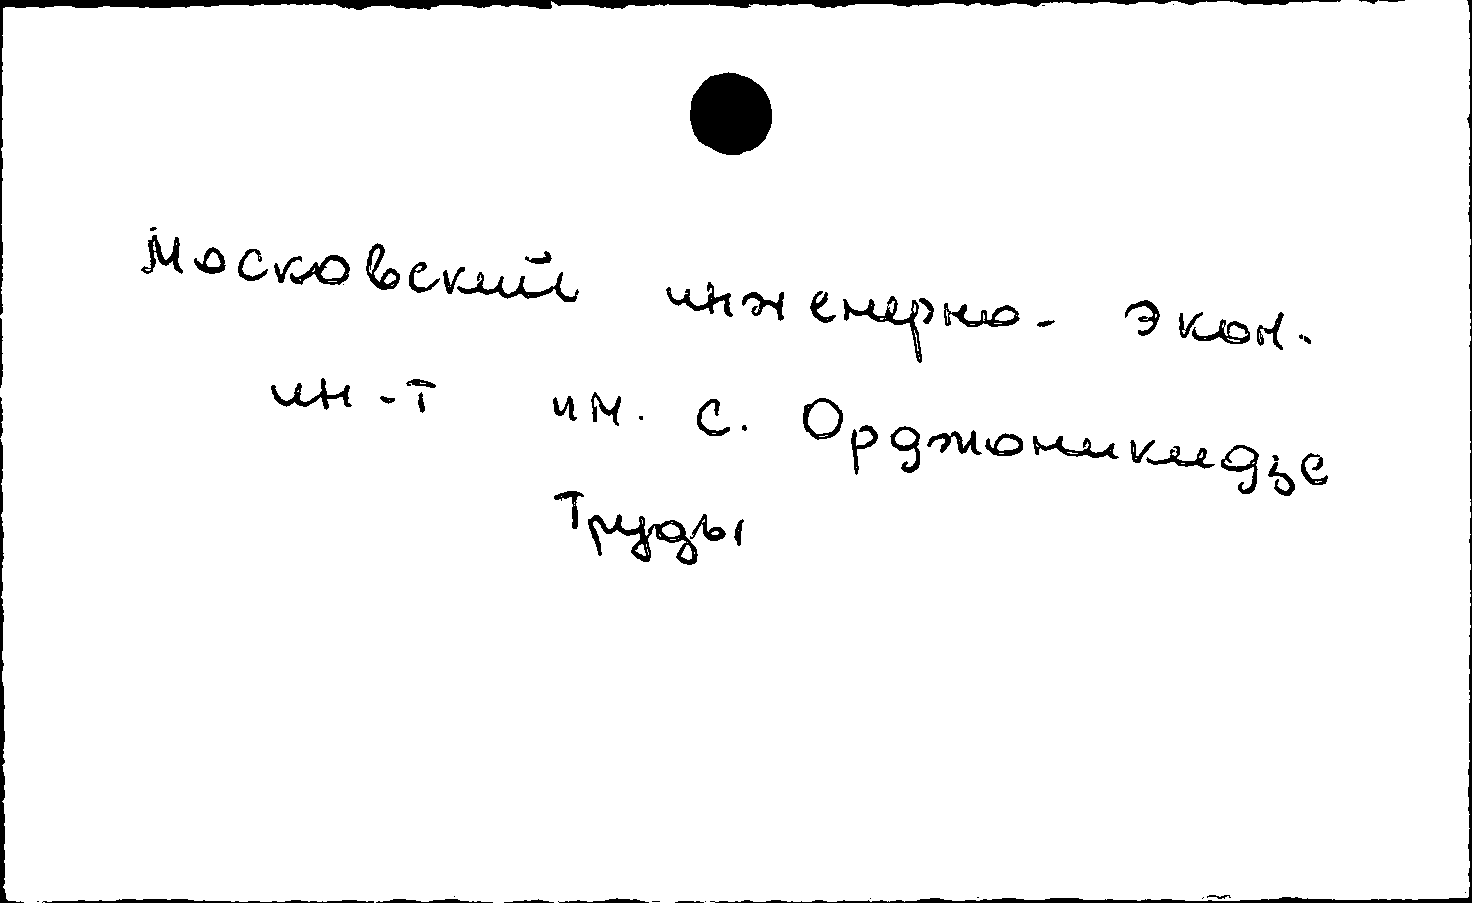 Московский инженерно- экон.
ин-т им. С. Орджоникидзе
Труды